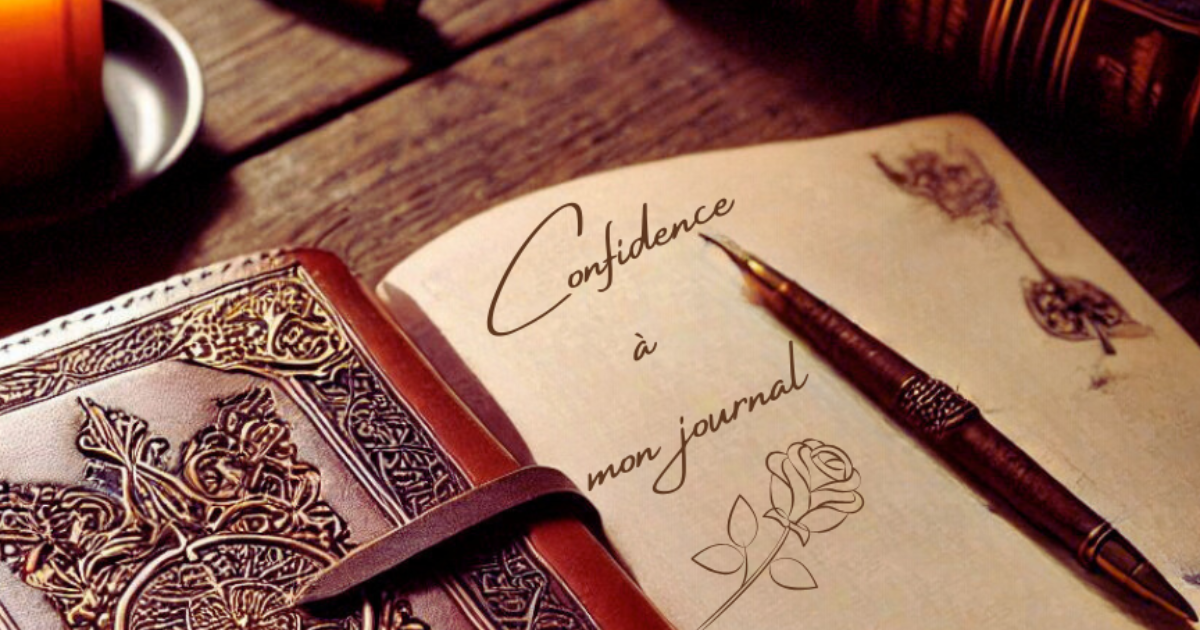 Confidence
à
mon journal